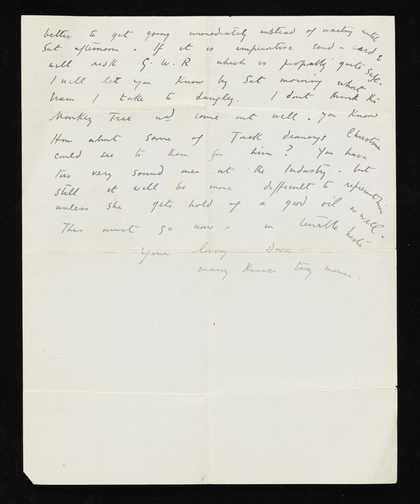 better to get going immediately instead of waiting until
Sat afternoon. If it is imperative send a card &
will risk G.W.R which is probably quite safe.
I will let you know by Sat morning what
train I take to Langley. I dont think the
Monkey Tree wd come out well. You know
How about some of Jack Christina
could see to them for him? You have
two very sound men at the Industry. but
still it will be more difficult to represent him
unless she gets hold of a good oil as well.
This must go now. in terrible haste
Your loving Dora
many kisses